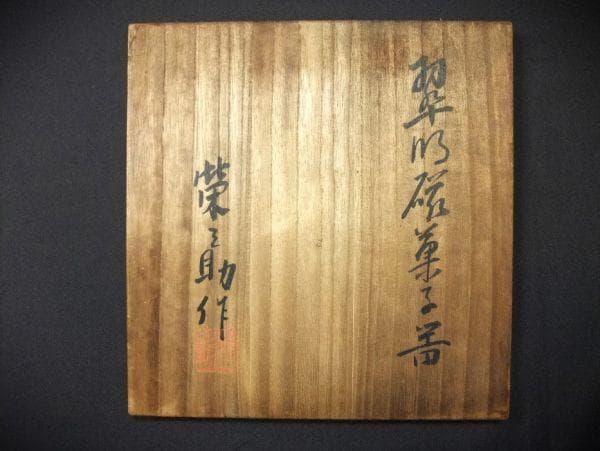 翠明磁菓子器
榮之助作